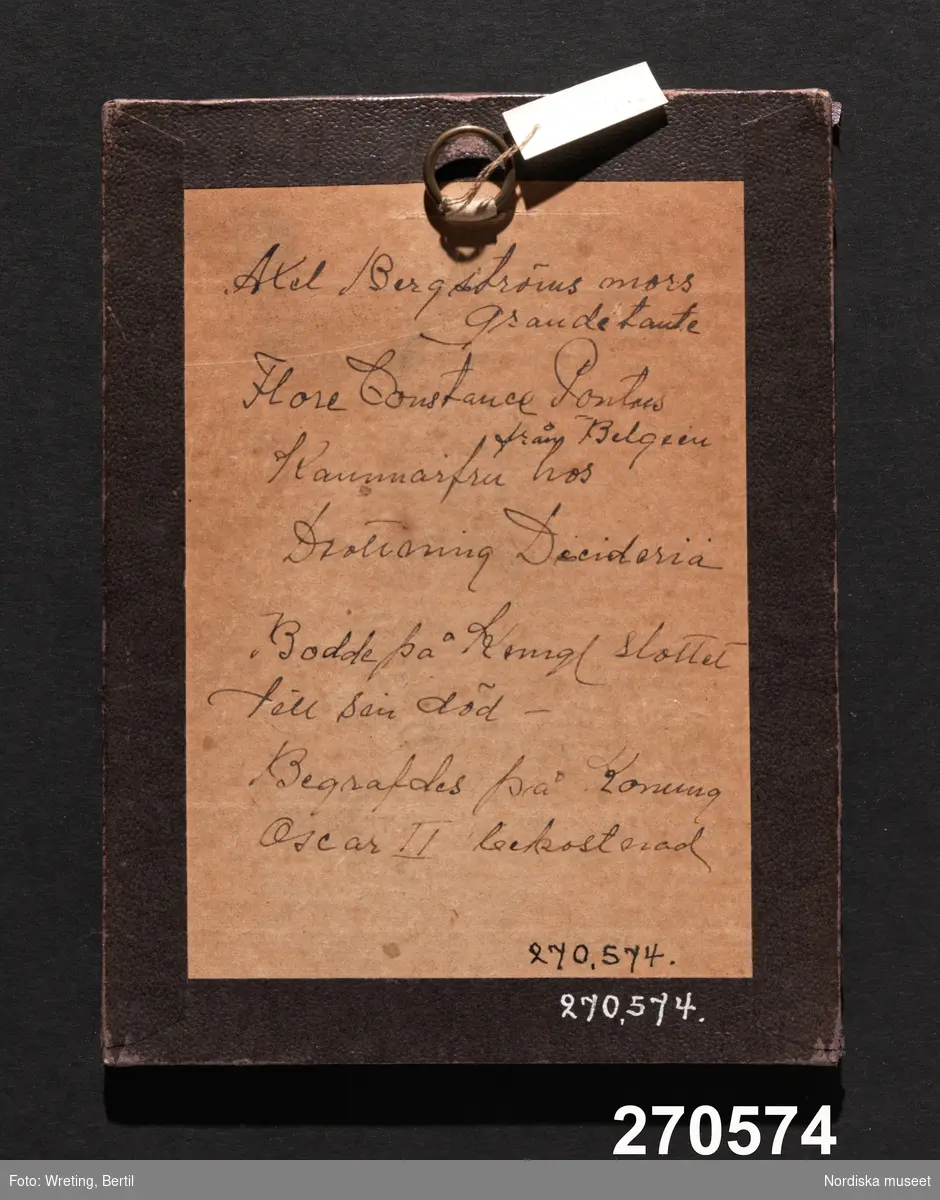 Axel Bergströms mors
grandetante
Flore Constance Pontus
från Belgien
Kammarfru hos
Drottning Decideria
Bodde på Kongl slottet
till sin död –
Begrafdes på Konung
Oscar II bekostnad
270,574.
270,574.
270574
Foto: Wreting, Bertil
Nordiska museet